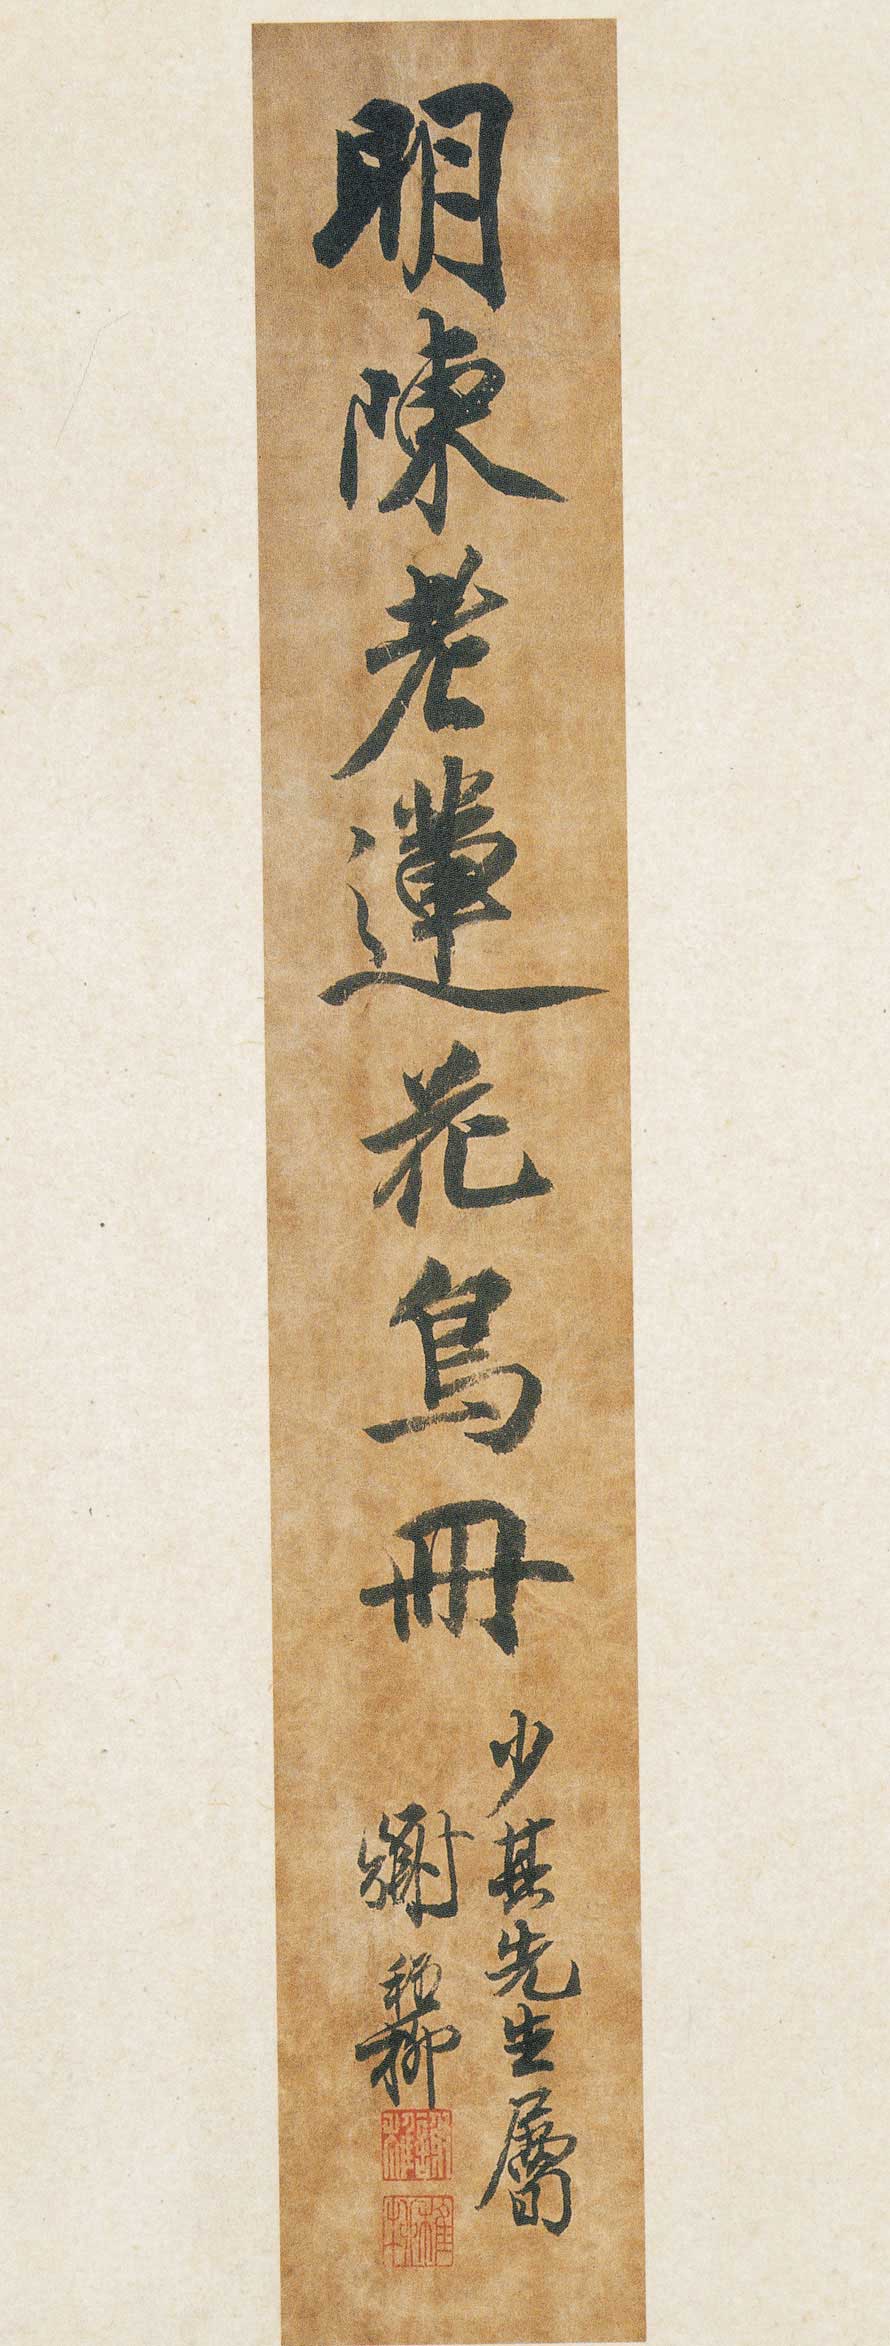 明陳老蓮花鳥冊
少其先生屬
謝稚柳